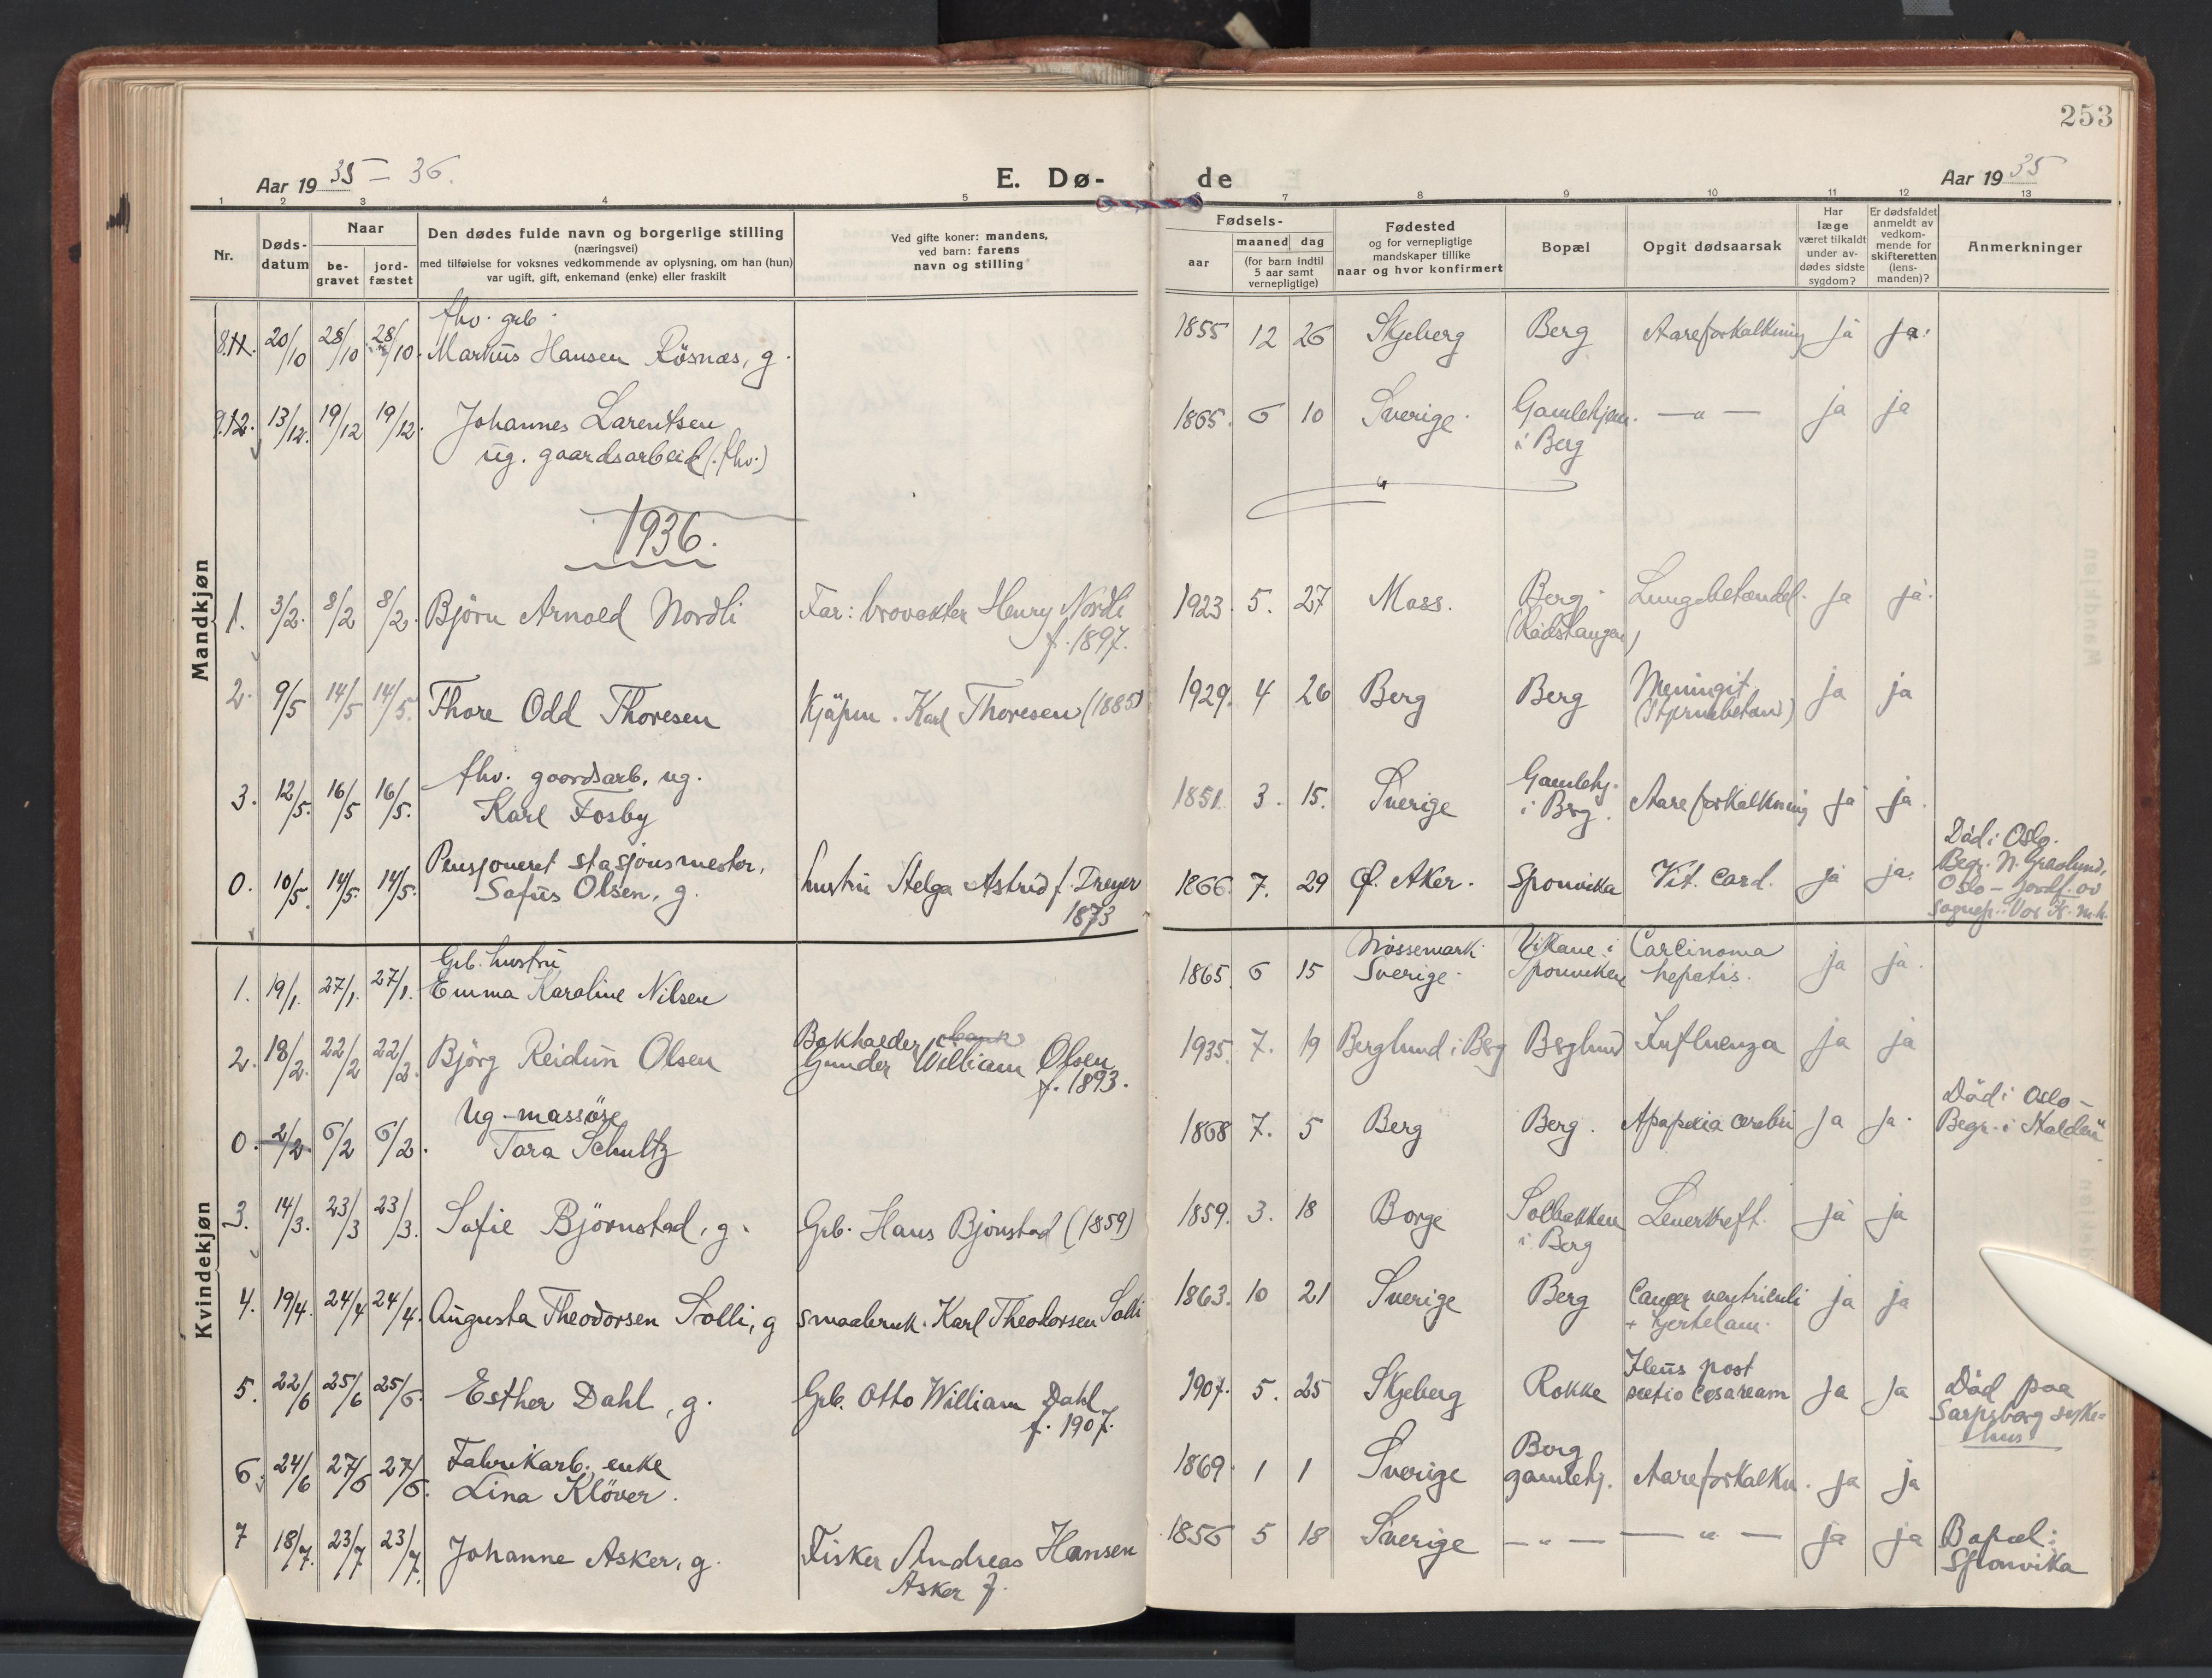 253
Aar 1935 – 36.
E. Dø-
de
Aar 1935
1 2 3 4 5 6 7 8 9 10 11 12 13
Nr.
Døds-
datum
Naar
be-
gravet
jord-
fæstet
Den dødes fulde navn og borgerlige stilling
(næringsvei)
med tilføielse for voksnes vedkommende av oplysning, om han (hun)
var ugift, gift, enkemand (enke) eller fraskilt
Ved gifte koner: mandens,
ved barn: farens
navn og stilling
Fødsels-
aar
maaned
dag
(for barn indtil
5 aar samt
vernepligtige)
Fødested
og for vernepligtige
mandskaper tillike
naar og hvor konfirmert
Bopæl
Opgit dødsaarsak
Har
læge
været tilkaldt
under av-
dødes sidste
sygdom?
Er dødsfaldet
anmeldt av
vedkom-
mende for
skifteretten
(lens-
manden)?
Anmerkninger
Mandkjøn
fhv. grb.
8. 20/10 28/10 28/10. Markus Hansen Røsnæs, g. 1855 12 26 Skjeberg Berg Aareforkalkning ja ja.
9. 13/12. 19/12 19/12. Johannes Larentsen 1865. 6 10 Sverige. Gamlehjem. — " — ja ja
ug. gaardsarbeid (fhv.) i Berg
1936.
1. 3/2. 8/2 8/2. Björn Arnold Nordli Far: brovakter Henry Nordli 1923. 5. 27 Moss. Berg. Lungebetændel. ja ja.
f. 1897.
2. 9/5 14/5 14/5. Thore Odd Thoresen Kjøpm. Karl Thoresen (1885) 1929. 4 26 Berg Berg Meningit. ja ja
fhv. gaardsarb. ug. Gamlehj.
3. 12/5. 16/5 16/5. Karl Fosby 1851. 3. 15. Sverige i Brg. Aareforkalkning ja ja.
Pensjoneret stasjonsmester, Död i Oslo.
0. 10/5. 14/5. 14/5. Sofus Olsen, g. hustru Helga Astrid f. Dreyer 1866. 7. 29 Ø. Aker. Sponvika Vit. card. ja ja. Begr. N. Gravlund,
1873 Oslo – jordf. av
Kvindekjøn
Grb. hustru Nössemark Vikane i Carcinoma
1. 19/1. 27/1. 27/1. Emma Karoline Nilsen 1865. 6 15 Sverige. Sponviken hepatis. ja ja.
Bokholder
2. 18/2. 22/2 22/2. Björg Reidun Olsen Gunder William Olsen 1935. 7. 19 Berglund i Brg Berglund Influenza ja ja
f. 1893.
Ug. massöse Död i Oslo –
0. 2/2. 6/2 6/2. Tora Schultz 1868 7. 5 Berg Berg. ja ja. Begr. i Halden
3. 14/3. 23/3 23/3. Sofie Björnstad, g. Grb. Hans Bjørnstad (1859) 1859. 3. 18 Borge Solbakken Leverkreft. ja ja
i Berg
4. 19/4. 24/4 24/4. Augusta Theodorsen Solli, g smaabruk. Karl Theodorsen Solli 1863. 10 21 Sverige Berg Cancer ventriculi ja ja
Ileus post
5. 22/6 25/6 25/6. Esther Dahl, g. Grb. Otto William Dahl 1907. 5. 25 Skjeberg Rokke sectio cesaream ja ja Död paa
f. 1907. Sarpsborg syke-
hus
Fabrikarb. enke Berg
6. 24/6 27/6 27/6. Lina Klöver. 1869. 1 1 Sverige gamlehj. Aareforkalkn. ja ja
7 18/7. 23/7 23/7. Johanne Asker, g. Fisker Andreas Hansen 1856 5 18 Sverige — " — — " — ja ja Bopæl:
Asker Sponvika